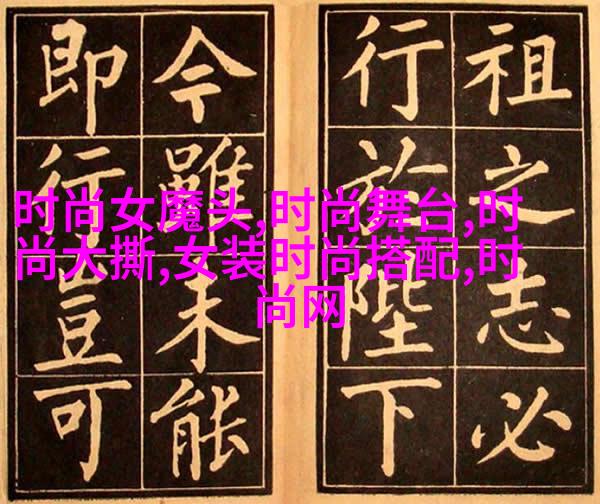 祖之志必
行於陛下
今雖未能
即行豈可
时尚女魔头,时尚舞台,时
尚大撕,女装时尚搭配,时
尚网